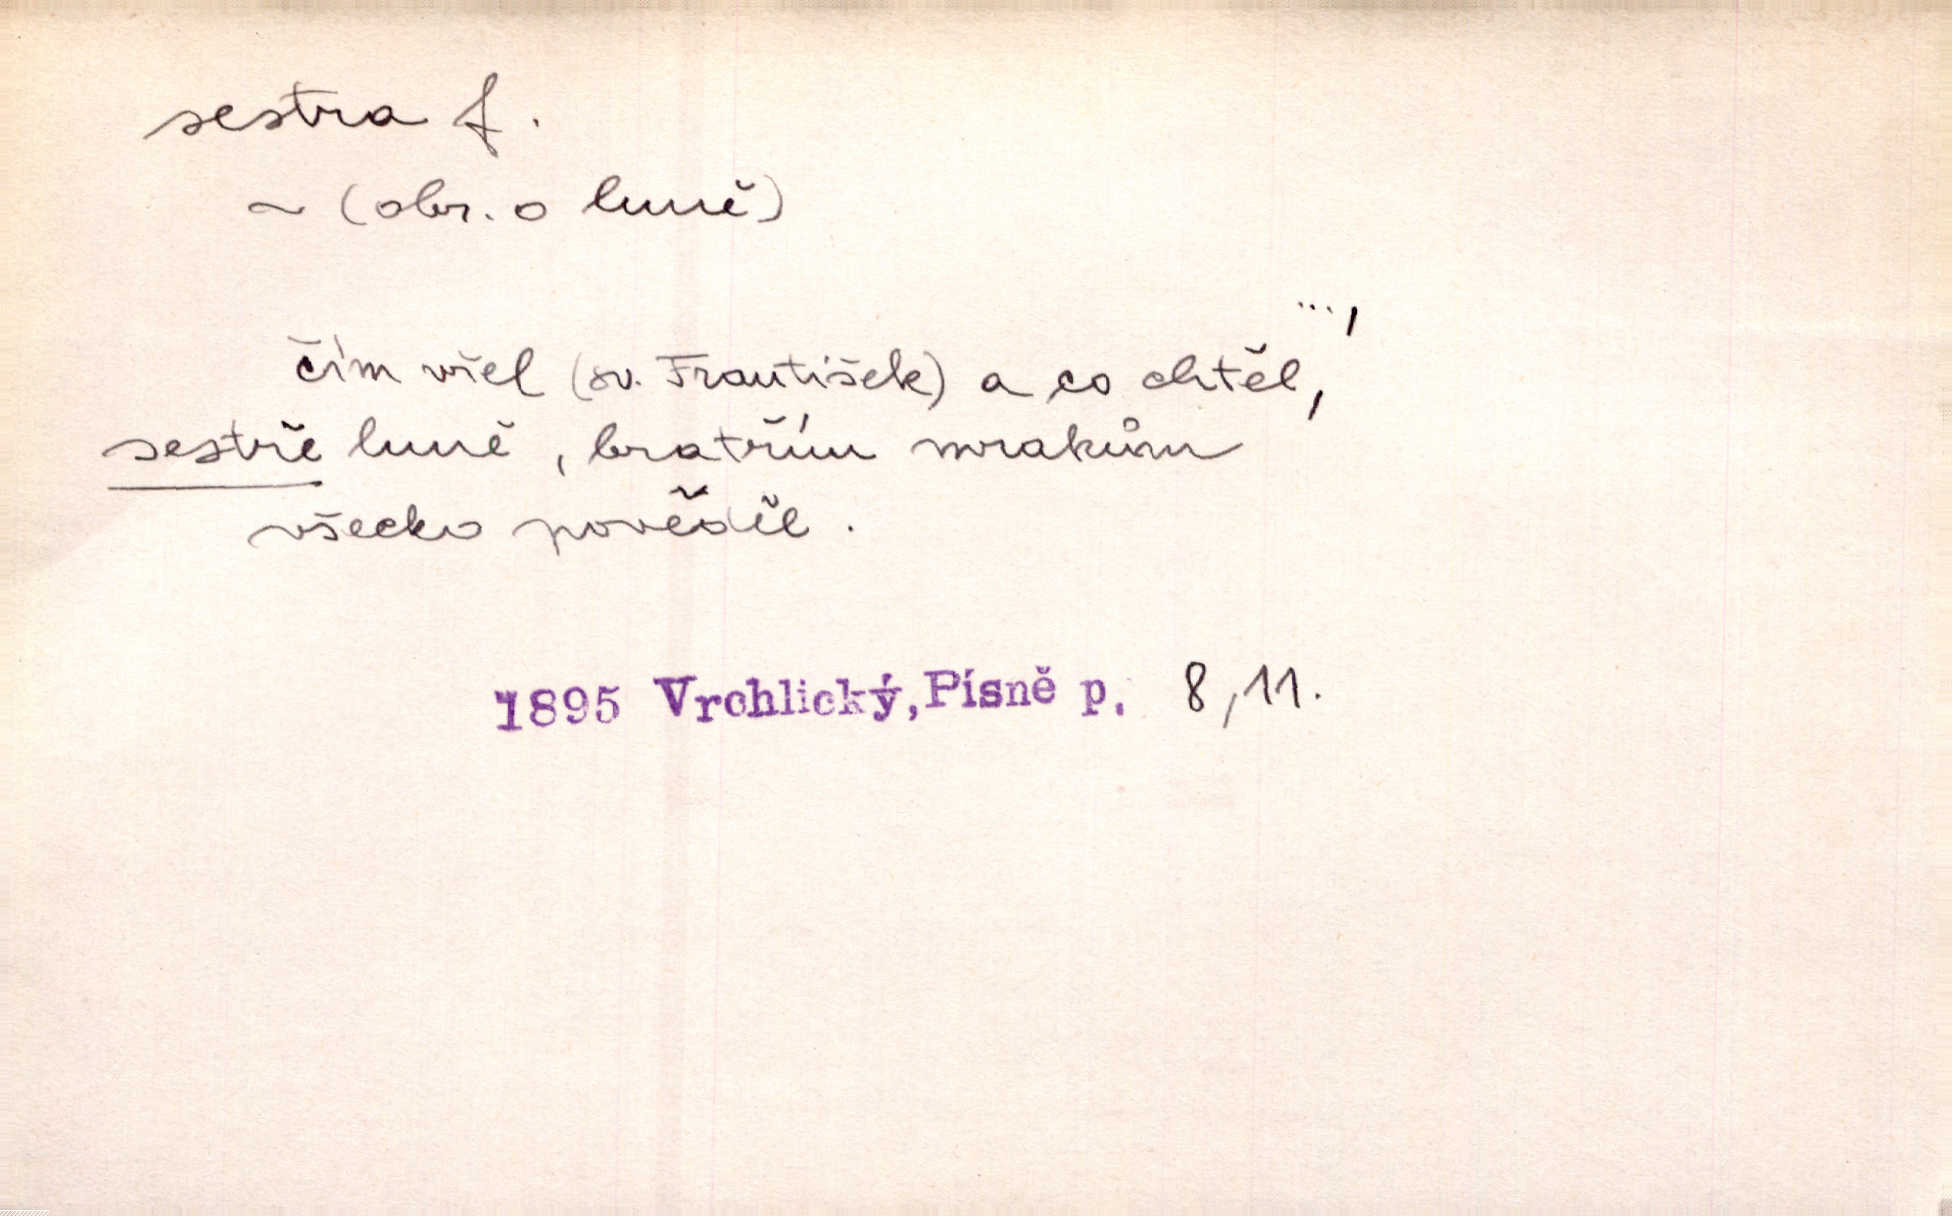 sestra f.
~ (obr. o luně)
...,
čím vřel (sv. František) a co chtěl,
sestře luně, bratřím mrakům
všecko pověděl.
1895 Vrchlický, Písně p. 8,11.